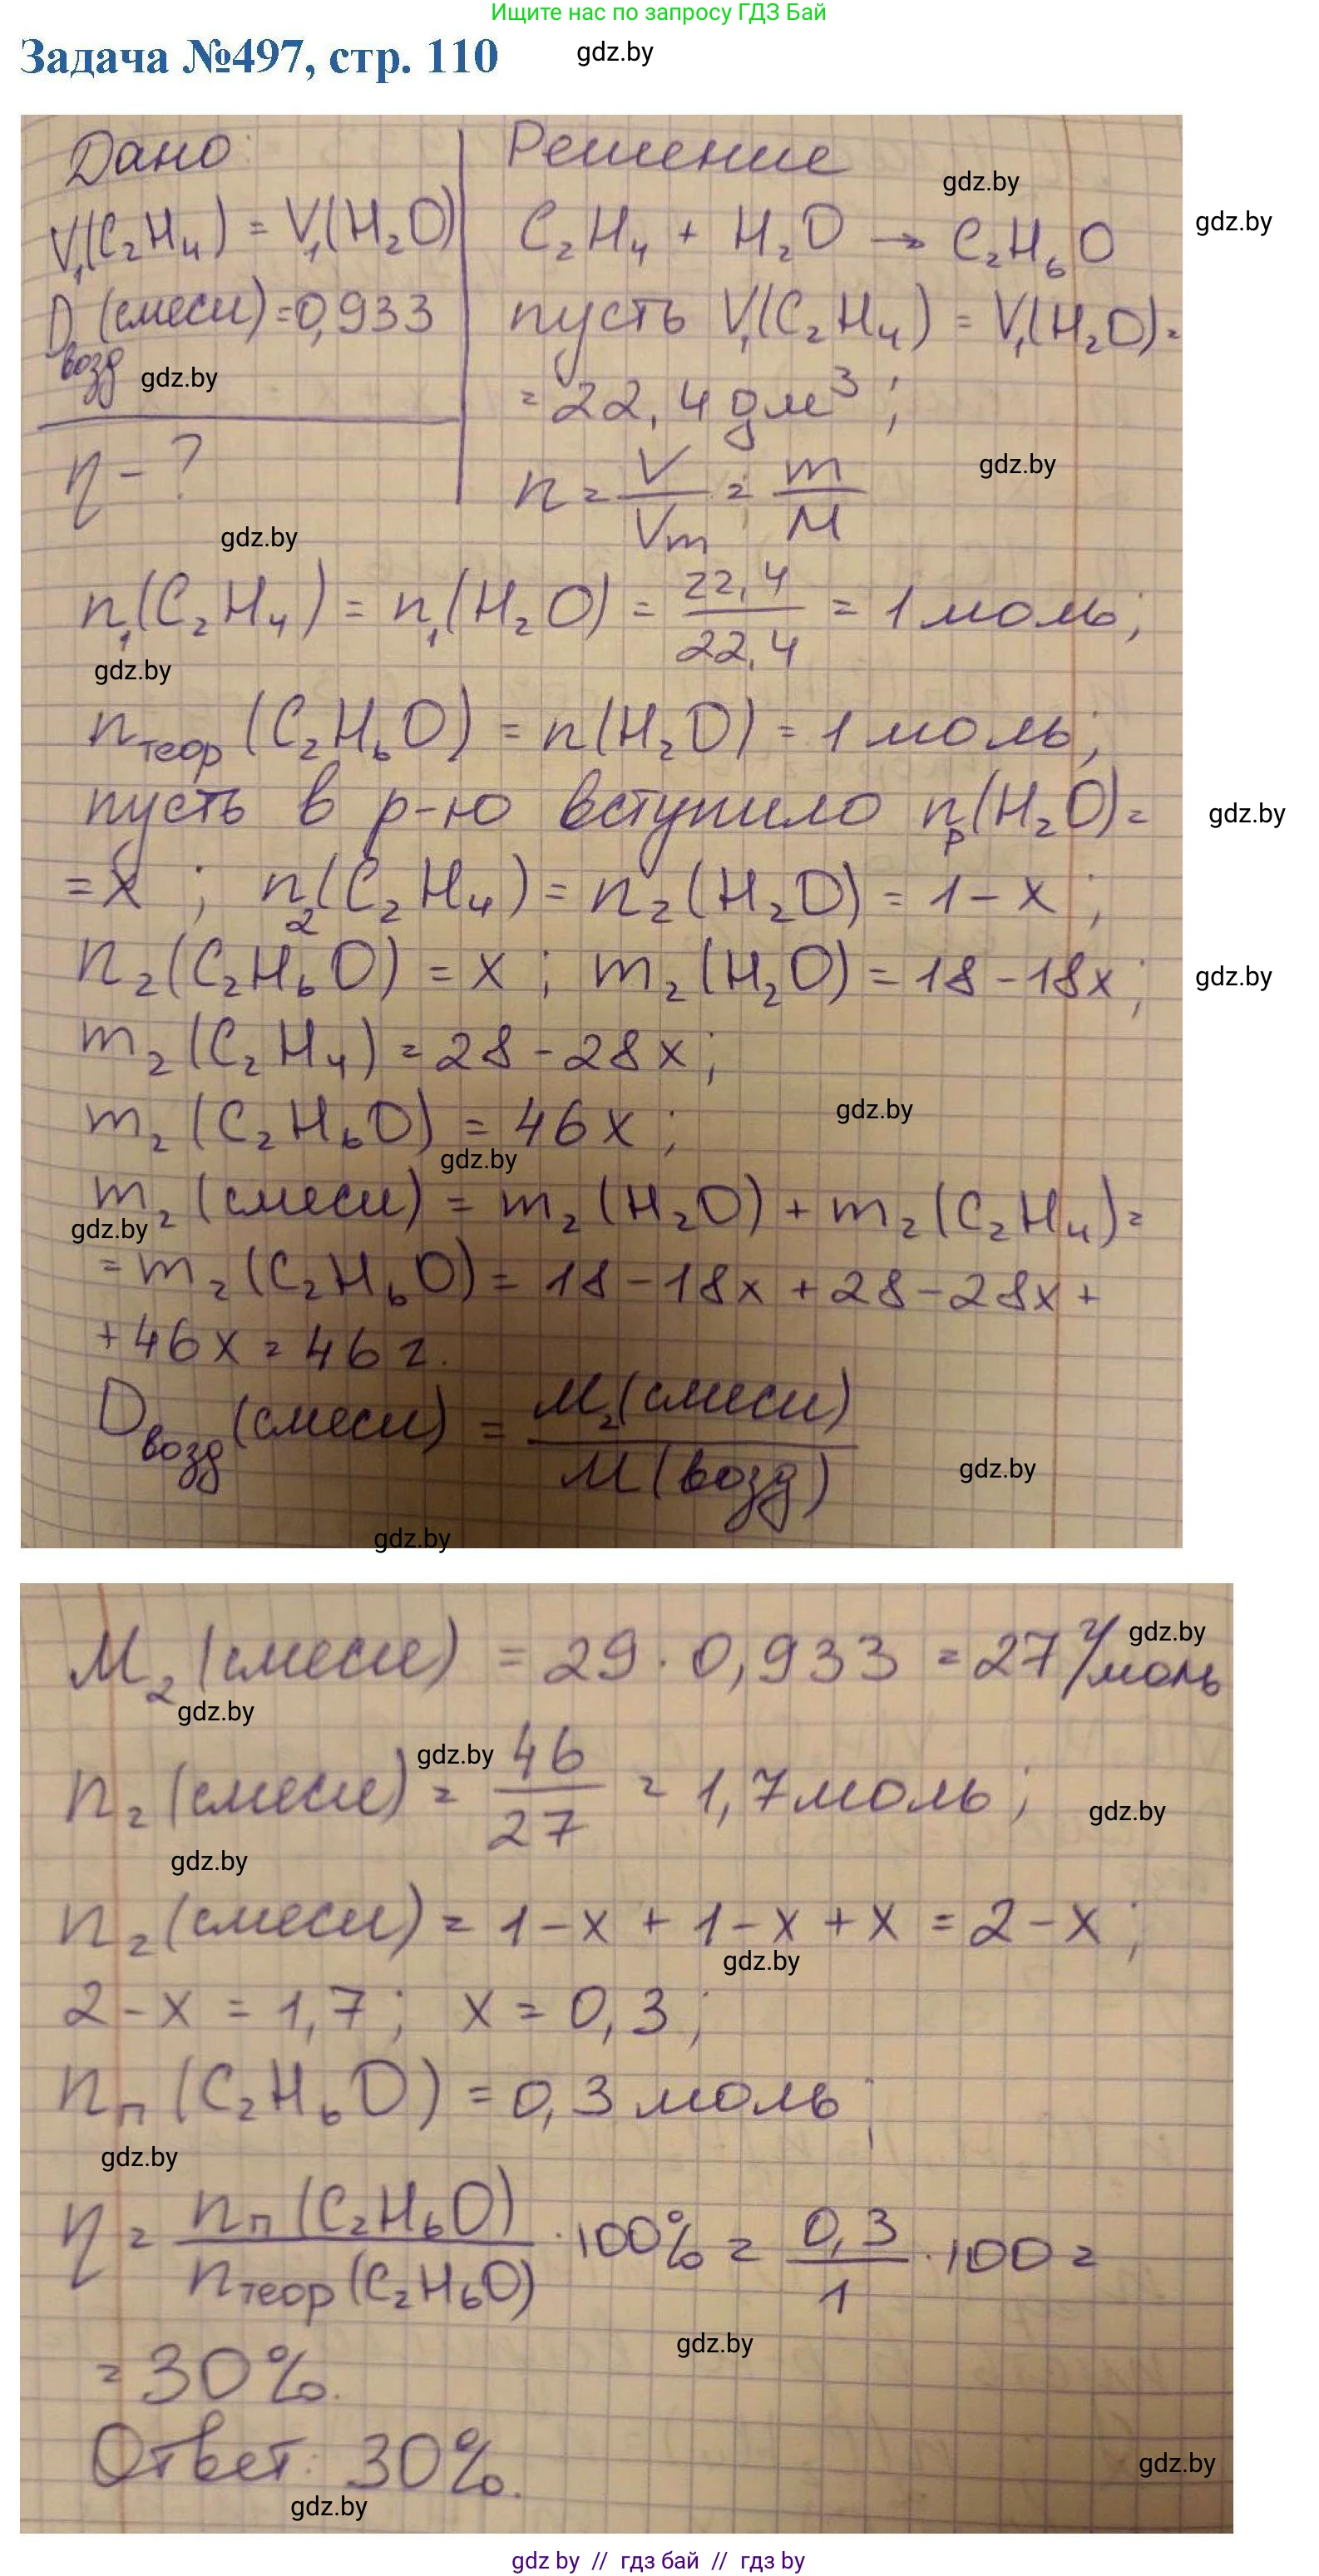 Ищите нас по запросу ГДЗ Бай
Задача №497, стр. 110
gdz.by
Дано
Решение
gdz.by
gdz.by
V₁(C₂H₄) = V₁(H₂O)
C₂H₄ + H₂O → C₂H₆O
Dвозд (смеси) = 0,933
gdz.by
пусть V₁(C₂H₄) = V₁(H₂O) =
= 22,4 дм³ ;
η - ?
gdz.by
n = V/Vm = m/M
gdz.by
n₁(C₂H₄) = n₁(H₂O) = 22,4/22,4 = 1 моль;
gdz.by
nтеор (C₂H₆O) = n(H₂O) = 1 моль;
пусть в р-ю вступило nр(H₂O) =
gdz.by
= x ; n₂(C₂H₄) = n₂(H₂O) = 1 - x ;
n₂(C₂H₆O) = x ; m₂(H₂O) = 18 - 18x ;
gdz.by
m₂(C₂H₄) = 28 - 28x ;
m₂(C₂H₆O) = 46x ;
gdz.by
gdz.by
m₂(смеси) = m₂(H₂O) + m₂(C₂H₄) =
gdz.by
= m₂(C₂H₆O) = 18 - 18x + 28 - 28x +
+ 46x = 46 г.
Dвозд (смеси) = M₂(смеси)/M(возд)
gdz.by
gdz.by
M₂(смеси) = 29 · 0,933 = 27 г/моль
gdz.by
gdz.by
n₂(смеси) = 46/27 = 1,7 моль ;
gdz.by
gdz.by
gdz.by
n₂(смеси) = 1 - x + 1 - x + x = 2 - x ;
gdz.by
2 - x = 1,7 ; x = 0,3 ;
nп (C₂H₆O) = 0,3 моль ;
gdz.by
η = nп (C₂H₆O)/nтеор (C₂H₆O) · 100% = 0,3/1 · 100 =
gdz.by
= 30%.
Ответ: 30%.
gdz.by
gdz.by
gdz by // гдз бай // гдз by